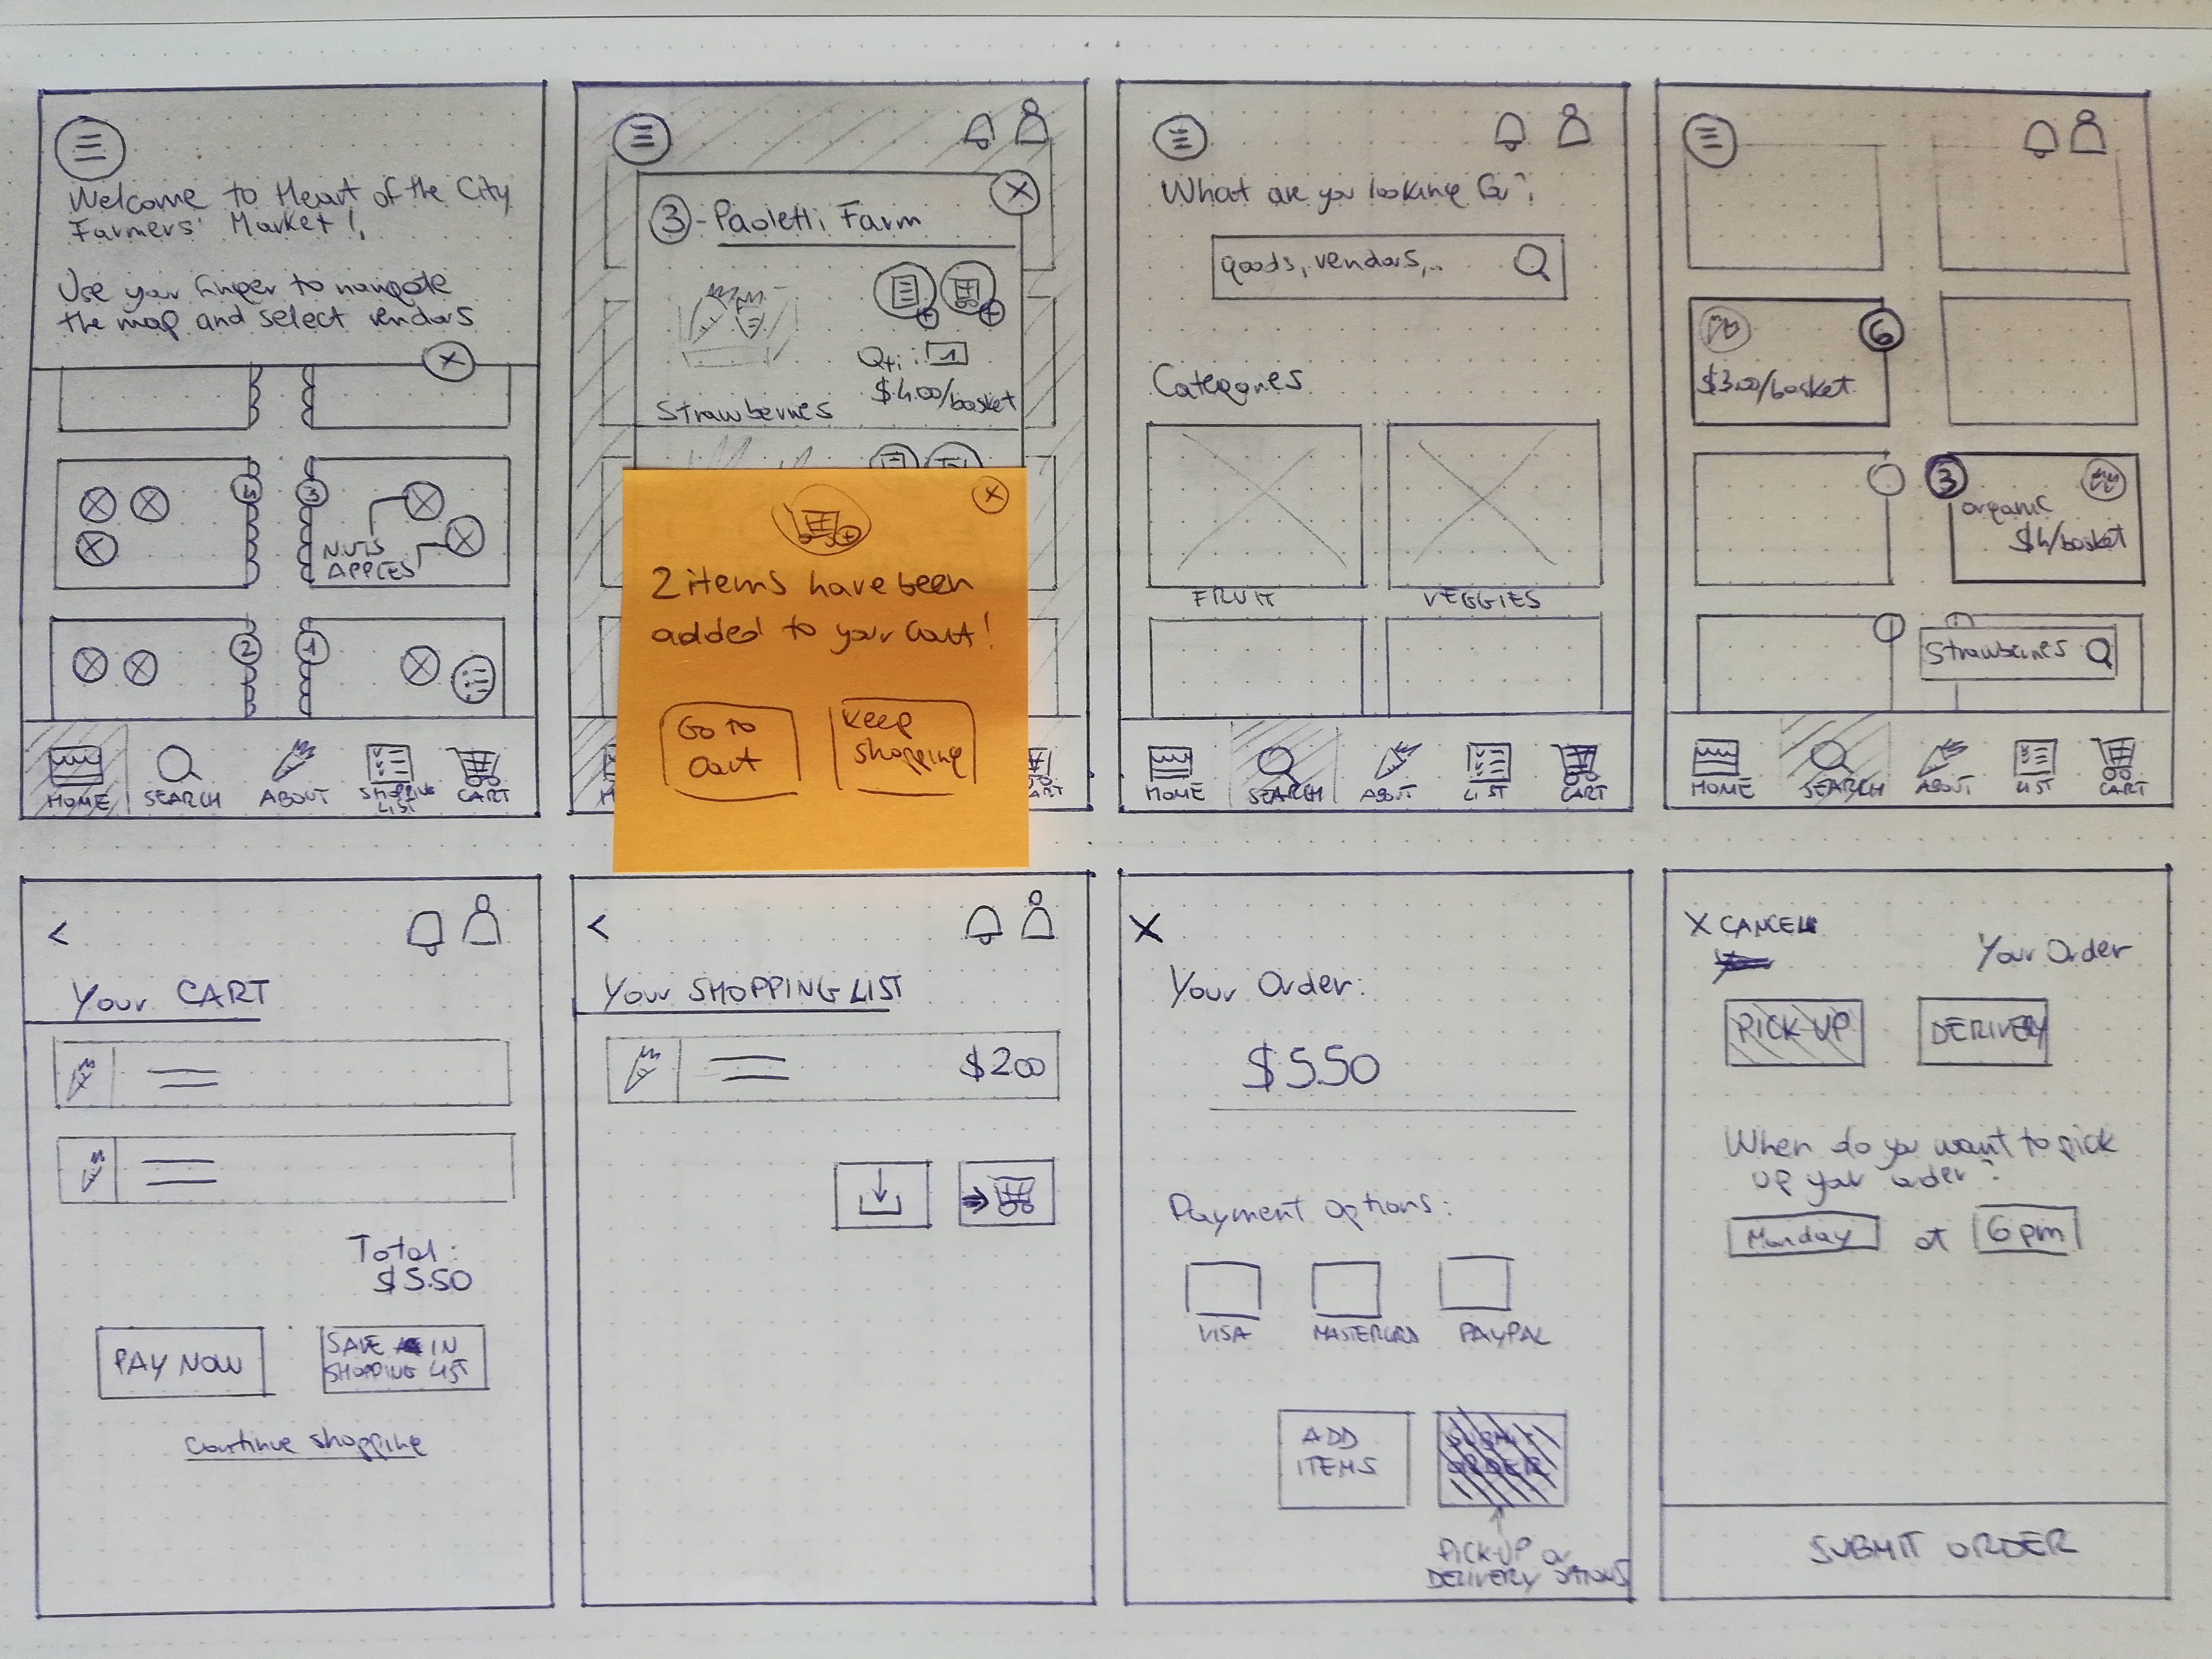 Welcome to Heart of the City
Farmers' Market!
Use your finger to navigate
the map and select vendors
4
3
NUTS
APPLES
2
1
HOME
SEARCH
ABOUT
SHOPPING
LIST
CART
3 - Paoletti Farm
Qti: 1
$4.00/basket
Strawberries
2 items have been
added to your Cart!
Go to
Cart
Keep
shopping
What are you looking for?
goods, vendors,..
Categories
FRUIT
VEGGIES
HOME
SEARCH
ABOUT
LIST
CART
6
$3.00/basket
3
organic
$4/basket
Strawberries
HOME
SEARCH
ABOUT
LIST
CART
<
Your CART
Total:
$5.50
PAY NOW
SAVE IN
SHOPPING LIST
Continue shopping
<
Your SHOPPING LIST
$2.00
X
Your Order:
$5.50
Payment options:
VISA
MASTERCARD
PAYPAL
ADD
ITEMS
SUBMIT
ORDER
PICK-UP or
DELIVERY OPTIONS
X CANCEL
Your Order
PICK-UP
DELIVERY
When do you want to pick
up your order?
Monday at 6 pm
SUBMIT ORDER